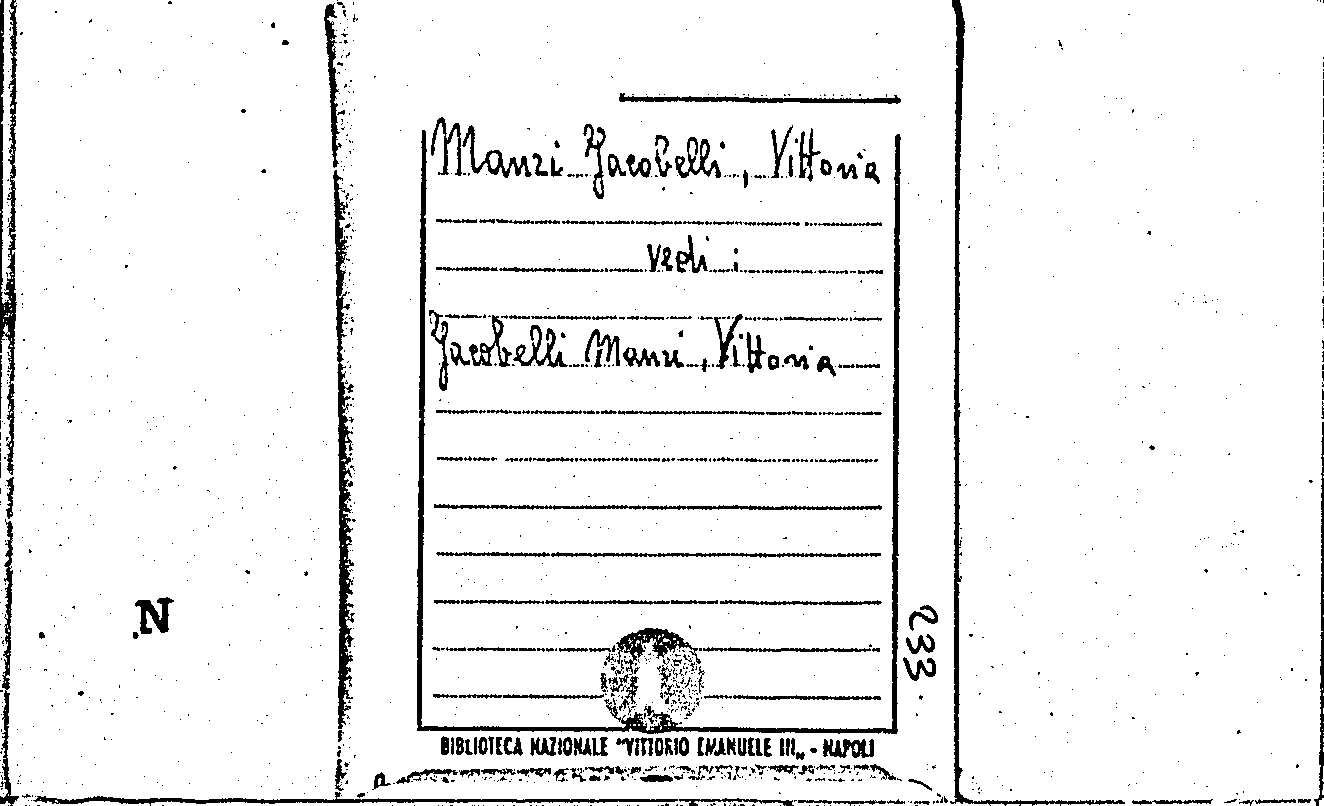 Manzi Jacobelli, Vittoria
vedi :
Jacobelli Manzi, Vittoria
N
233
BIBLIOTECA NAZIONALE "VITTORIO EMANUELE III„ - NAPOLI